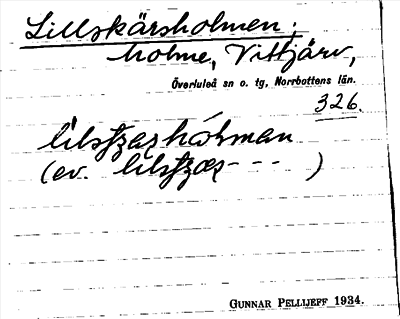 Lillskärsholmen;
holme, Vittjärv,
Överluleå sn o. tg, Norrbottens län.
326.
(ev. - - - )
GUNNAR PELLIJEFF 1934.